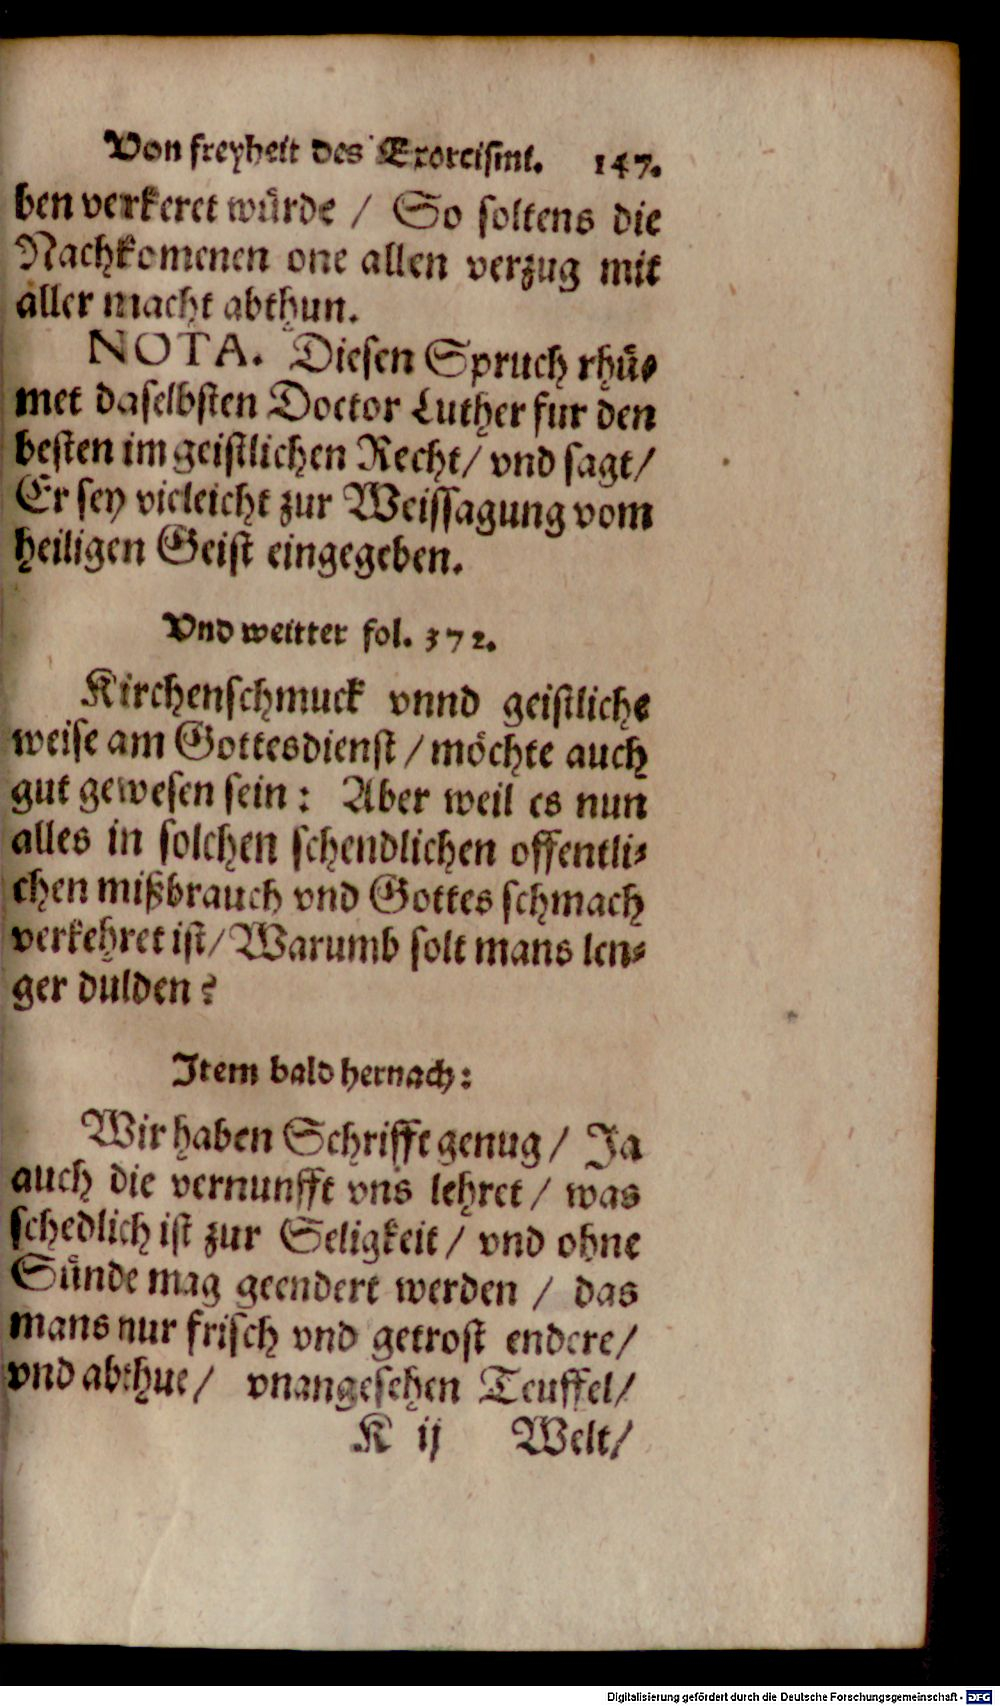 Von freyheit des Exorcismi. 147.
ben verkeret würde / So soltens die
Nachkomenen one allen verzug mit
aller macht abthun.
NOTA. Diesen Spruch rhü⸗
met daselbsten Doctor Luther fur den
besten im geistlichen Recht/ vnd sagt/
Er sey vieleicht zur Weissagung vom
heiligen Geist eingegeben.
Vnd weitter fol. 372.
Kirchenschmuck vnnd geistliche
weise am Gottesdienst / möchte auch
gut gewesen sein: Aber weil es nun
alles in solchen schendlichen offentli⸗
chen mißbrauch vnd Gottes schmach
verkehret ist/ Warumb solt mans len⸗
ger dulden?
Item bald hernach:
Wir haben Schrifft genug / Ja
auch die vernunfft vns lehret / was
schedlich ist zur Seligkeit / vnd ohne
Sünde mag geendert werden / das
mans nur frisch vnd getrost endere/
vnd abthue/ vnangesehen Teuffel/
K ij Welt/
Digitalisierung gefördert durch die Deutsche Forschungsgemeinschaft - DFG